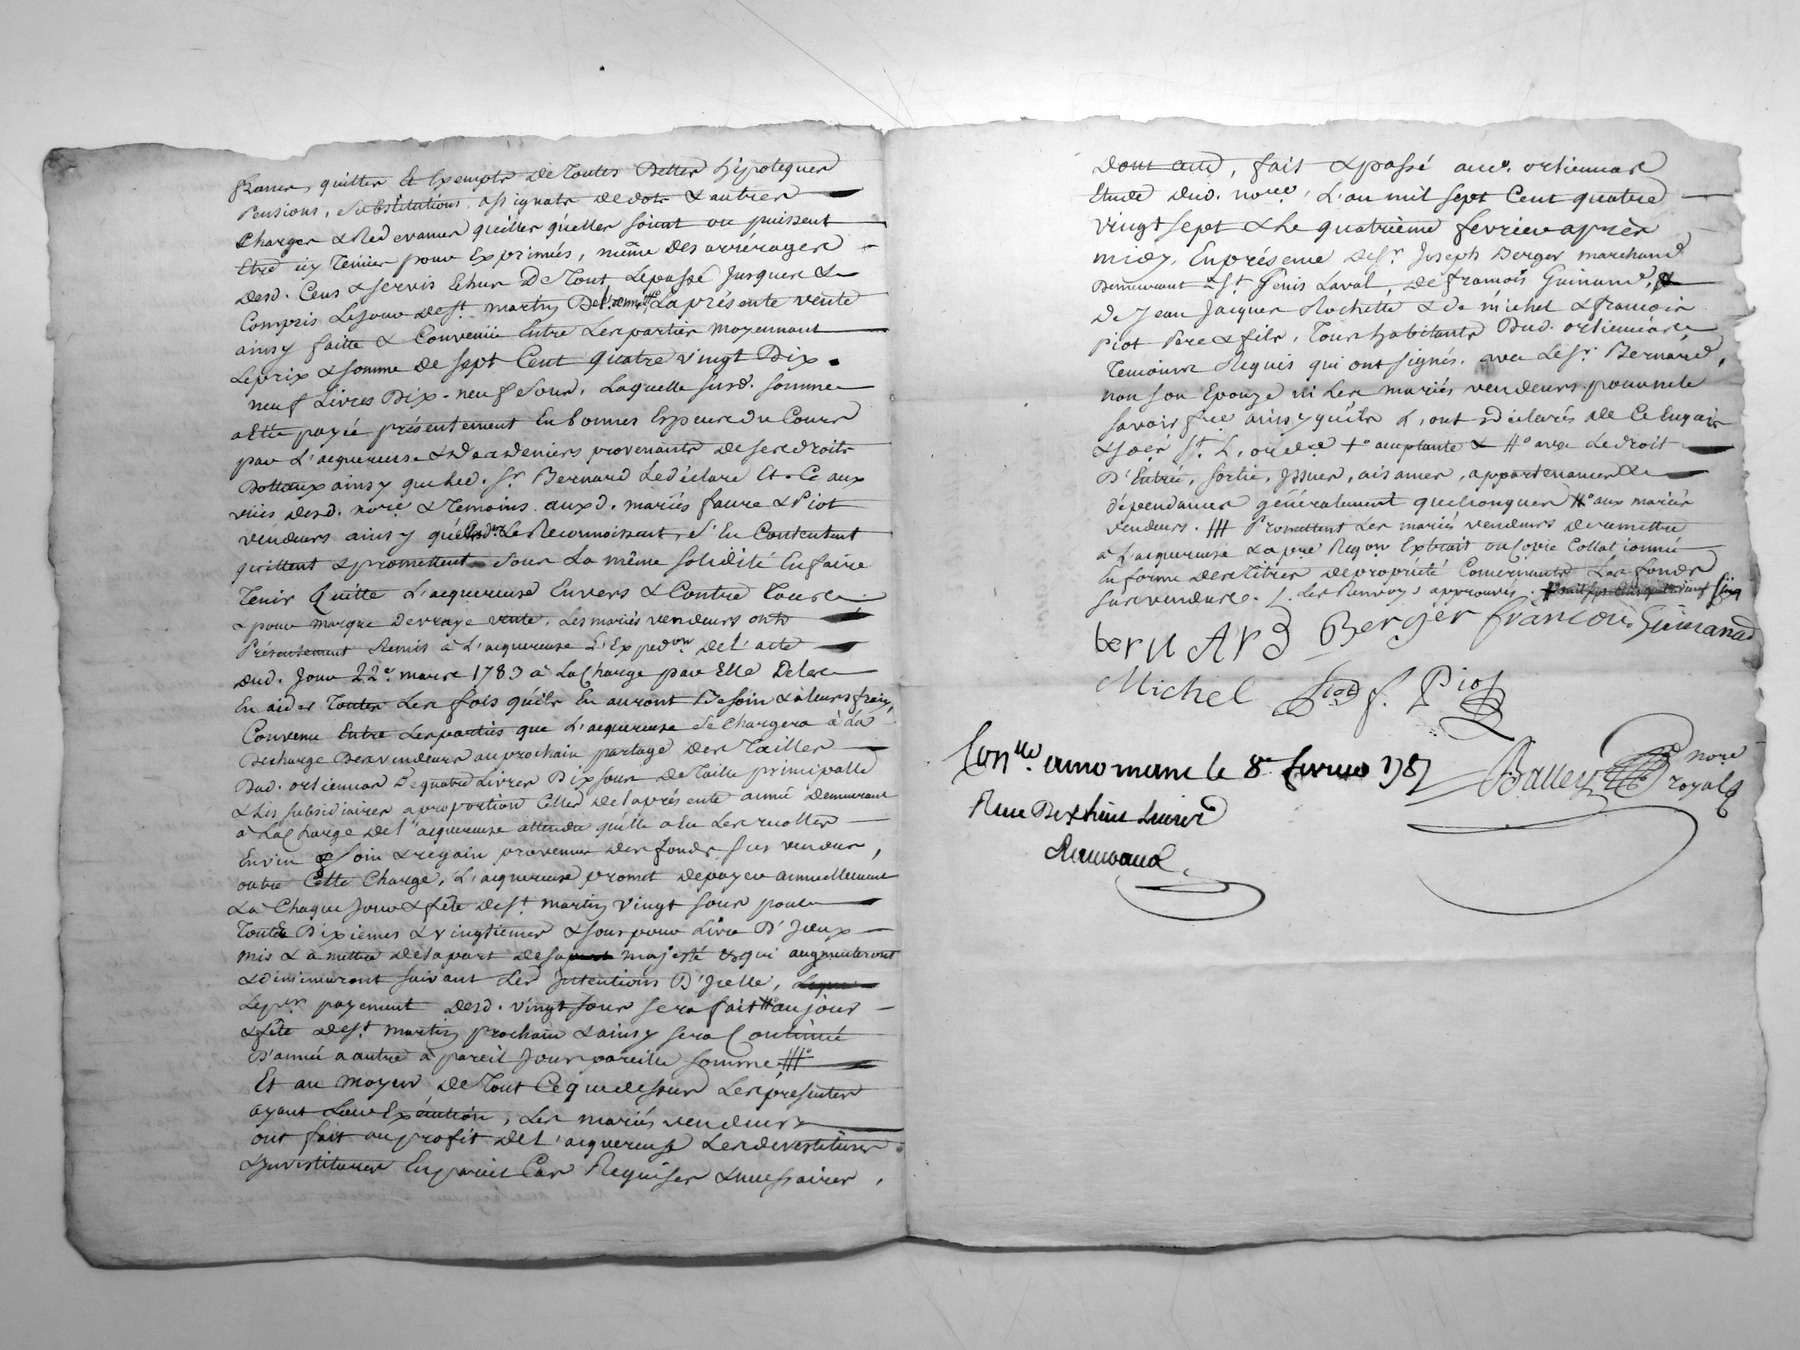 francs, quittes Et Exempts de Toutes Dettes hipoteques
Pensions, substitutions, assignats de dots & autres
Charges & Redevances quelles quelles soient ou puissent
Etre icy Tenues pour Exprimés, même des arrérages
desd. Cens & servis Echus De Tout Le passé Jusques &
Compris Le jour de st. martin La présente vente
ainsy faitte & Convenüe Entre Les parties moyennant
Le prix & somme de sept Cent quatre vingt Dix
neuf Livres Dix-neuf Sous, Laquelle susd. somme
a Eté payée présentement En bonnes Especes du Cours
par L'aquereuse & des deniers provenants de ses droits
Dottaux ainsy que led. sr. Bernard Le déclare Et Ce aux
vües desd. nore. & Temoins auxd. mariés faure & Piot
vendeurs ainsy Le Reconnoissent, s'En Contentent
quittent & promettent Sous La même solidité En faire
Tenir Quitte L'aquereuse Envers & Contre Tous
& pour marque de vraye vente, Les mariés vendeurs onts
Présentement Remis à L'aquereuse L'Expedon. de L'acte
dud. Jour 22e. mars 1783 à La Charge par Elle De les
En aider Toutes Les fois quils En auront Besoin & à leurs frais,
Convenu Entre Les parties que L'aquereuse Se Chargera à La
Décharge Des vendeurs au prochain partage des Tailles
Dud. orlienas De quatre Livres Dix sous de Taille principalle
& Les subsidiaires a proportion Celles de la présente année Demeurant
à La Charge de L'aquereuse attendu quelle a Eu Les recoltes
En vin foin & regain provenus des fonds sus vendus,
outre Cette Charge, L'aquereuse promet de payer annuellement
& a Chaque Jour & fête de st. martin vingt sous pour
Toutes Dixiemes & vingtiemes & sous pour Livre D'Iceux
mis & à mettre de la part de sa majesté & qui augmenteront
& diminueront suivant Les Intentions D'Icelle,
Le per. payement desd. vingt sous sera fait #° au jour
& fête de st. martin prochain & ainsy sera Continué
D'année a autre à pareil Jour pareille somme #°
Et au moyen de Tout Ce que dessus Les présentes
ayant Leur Exécution, Les mariés vendeurs
ont fait au profit de L'aquereuse Les devestitures
& Investitures En pareil Cas Requises & necessaires,
Dont acte, fait & passé aud. orliennas
Etude dud. nore., L'an mil sept Cent quatre
vingt sept & Le quatrième fevrier après
midy, En présence de sr. Joseph Berger marchand
Demeurant a st. Genis Laval, de francois Guinand,
De Jean Jacques Rochette & de michel & francois
Piot Pere & fils, Tous habitants Dud. orliennas
Temoins Requis qui ont signés avec Le sr. Bernard,
non son Epouze ni Les mariés vendeurs pour ne le
savoir faire ainsy quils L'ont déclarés de Ce Enquis
& sommés st. L'ordce. +° augmentante & #° avec Le droit
D'Entrée, sortie, Issues, aisances, appartenances
dépendances généralement quelconques #° aux mariés
vendeurs. #| Promettent Les mariés vendeurs de remettre
à L'aquereuse La Regon Extrait ou Copie Collationnée
En forme des Titres de propriété Concernants Les fonds
sus vendus. /. Les Renvoys approuvés.
bernARd Berger francois Guinand
Michel Piot f. Piot
Conlle. a mornant le 8e fevrier 1787
Balley nore
royal
Reçu Dix huit Livres